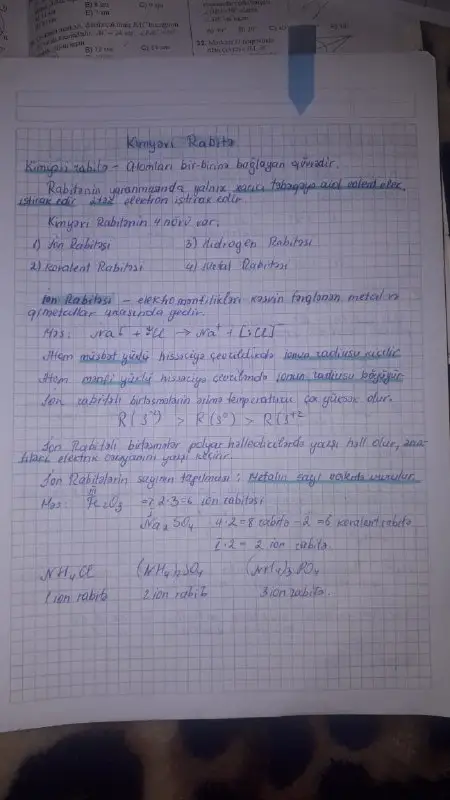 Kimyəvi Rabitə
Kimyəvi rabitə - Atomları bir-birinə bağlayan qüvvədir.
Rabitənin yaranmasında yalnız xarici təbəqəyə aid valent elek.
iştirak edir elektron iştirak edir
Kimyəvi Rabitənin 4 növü var.
1) İon Rabitəsi 3) Hidrogen Rabitəsi
2) Kovalent Rabitəsi 4) Metal Rabitəsi
İon Rabitəsi - elektromənfilikləri kəskin fərqlənən metal və
qmetallar arasında gedir.
Məs: Na + Cl → Na⁺ + [Cl]⁻
Atom müsbət yüklü hissəciyə çevrildikdə ionun radiusu kiçilir
Atom mənfi yüklü hissəciyə çevrilməndə ionun radiusu böyüyür
İon rabitəli birləşmələrin ərimə temperaturu çox yüksək olur.
R(S⁻²) > R(S⁰) > R(S⁺²
İon Rabitəli birləşmələr polyar həlledicilərdə yaxşı həll olur,
elektrik cərəyanını yaxşı keçirir.
İon Rabitələrin sayının tapılması: Metalın sayı valentə vurulur.
Məs: Fe₂O₃ => 2·3=6 ion rabitəsi
Na₂SO₄ 4·2=8 rabitə - 2 = 6 kovalent rabitə
1·2 = 2 ion rabitə
NH₄Cl (NH₄)₂SO₄ (NH₄)₃PO₄
1 ion rabitə 2 ion rabitə 3 ion rabitə.